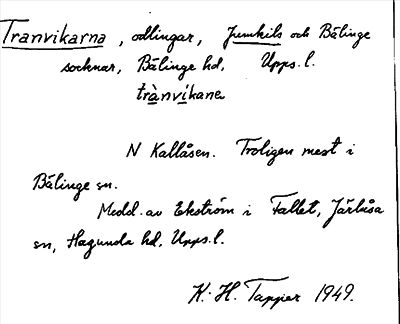 Tranvikarna, odlingar, Jumkils och Bälinge
socknar, Bälinge hd, Upps. l.
trànvíkane
N Kallåsen. Troligen mest i
Bälinge sn.
Medd. av Ekström i Fallet, Järlåsa
sn, Hagunda hd, Upps. l.
K. H. Tapper 1949.